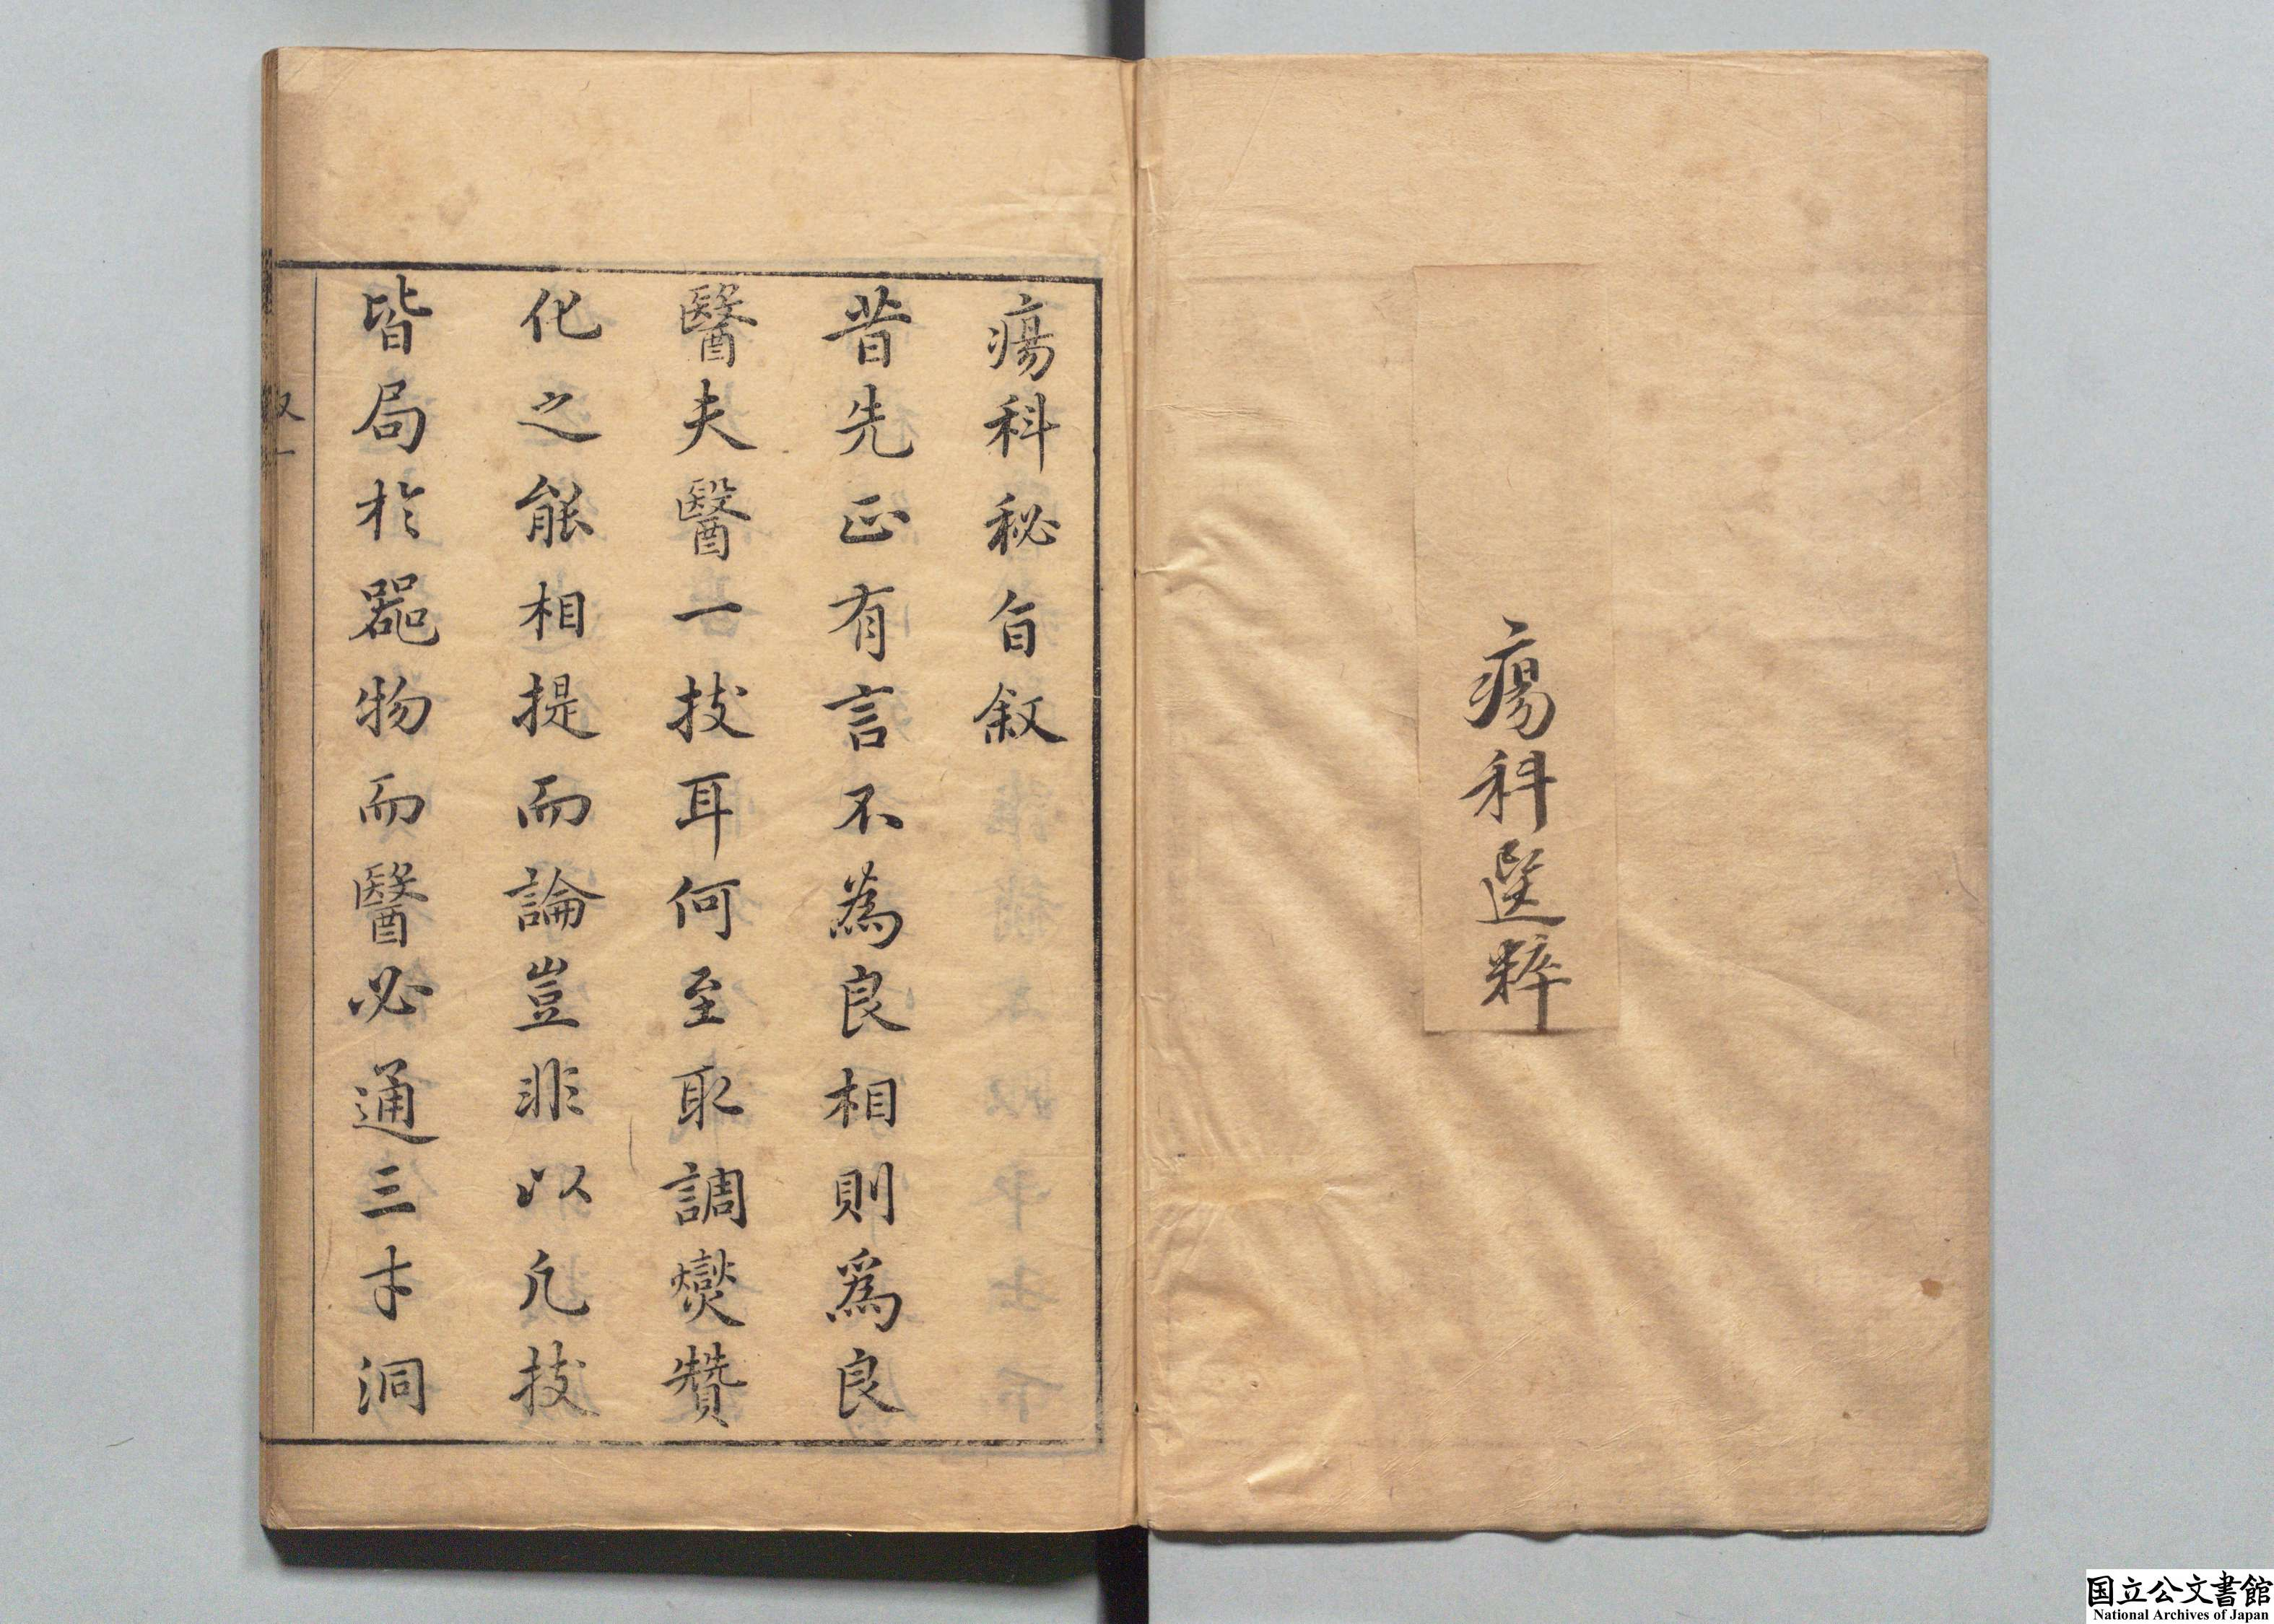 瘍科選粹
瘍科秘旨叙
昔先正有言不為良相則爲良
醫夫醫一技耳何至取調燮贊
化之能相提而論豈非以凢技
皆局於噐物而醫必通三才洞
叙一
国立公文書館
National Archives of Japan